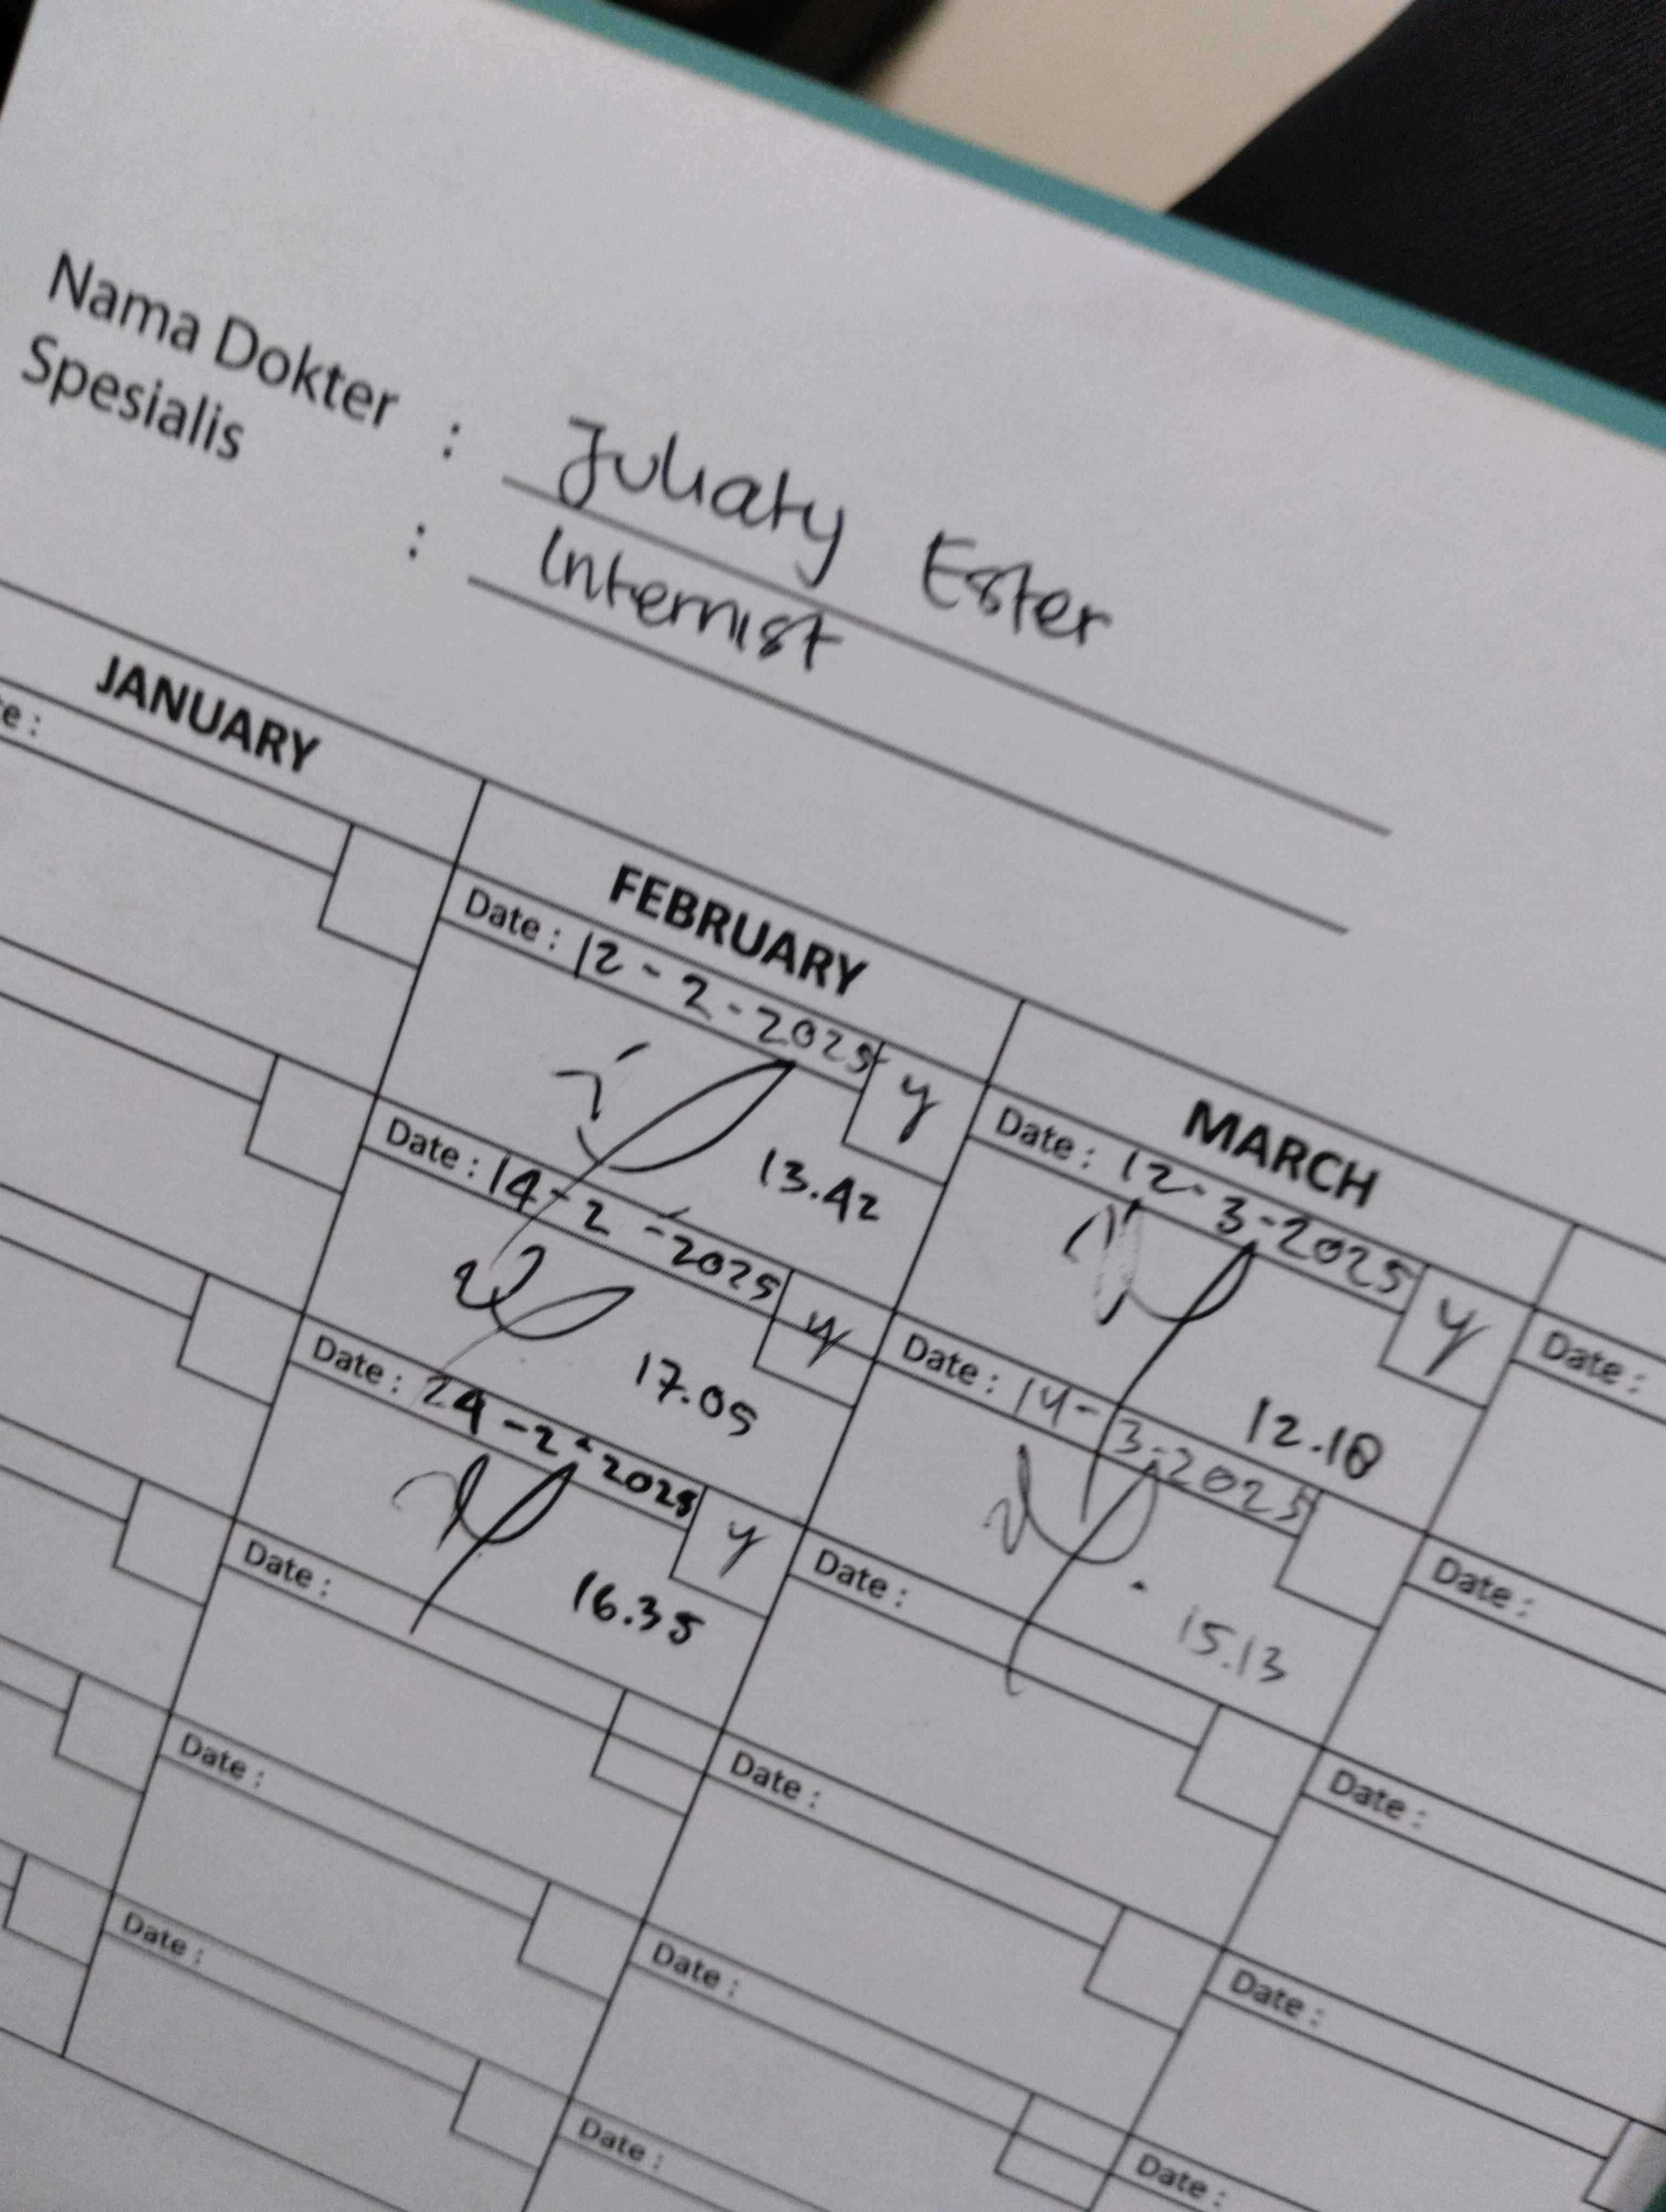 Nama Dokter : Juliaty Ester
Spesialis : Internist
JANUARY FEBRUARY MARCH
Date : 12-2-2025 y
13.42
Date : 14-2-2025 y
17.05
Date : 24-2-2025 y
16.35
Date :
Date :
Date :
Date : 12-3-2025 y
12.18
Date : 14-3-2025
15.13
Date :
Date :
Date :
Date :
Date :
Date :
Date :
Date :
Date :